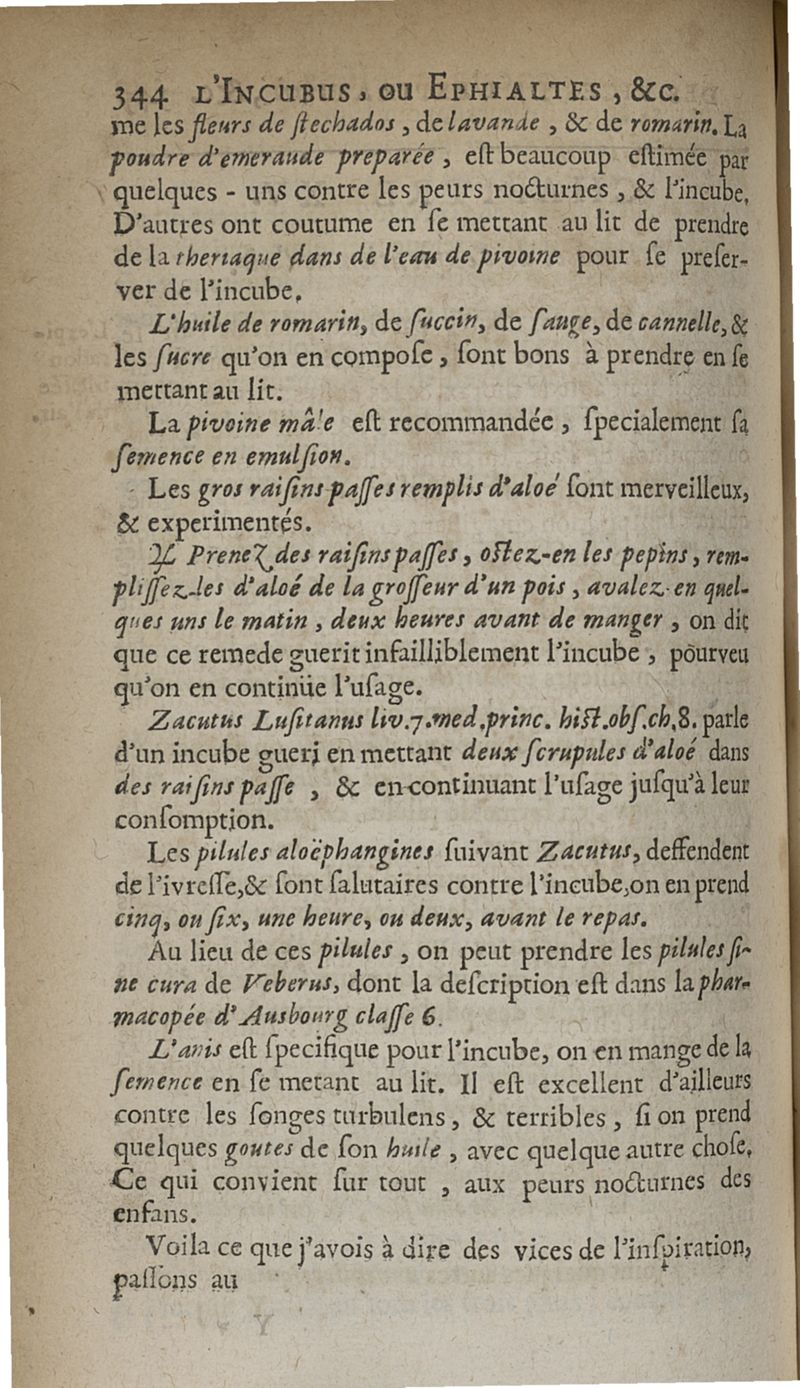 344 L'INCUBUS, OU EPHIALTES, &c.
me les fleurs de ſtechados, de lavande, & de romarin. La
poudre d'emeraude preparée, eſt beaucoup eſtimée par
quelques-uns contre les peurs nocturnes, & l'incube,
D'autres ont coutume en ſe mettant au lit de prendre
de la theriaque dans de l'eau de pivoine pour ſe preſer-
ver de l'incube.
L'huile de romarin, de ſuccin, de ſauge, de cannelle, &
les ſucre qu'on en compoſe, ſont bons à prendre en ſe
mettant au lit.
La pivoine mâle eſt recommandée, ſpecialement ſa
ſemence en emulſion.
Les gros raiſins paſſes remplis d'aloé ſont merveilleux,
& experimentés.
♃ Prenez des raiſins paſſes, oſtez-en les pepins, rem-
pliſſez-les d'aloé de la groſſeur d'un pois, avalez-en quel-
ques uns le matin, deux heures avant de manger, on dit
que ce remede guerit infailliblement l'incube, pourveu
qu'on en continüe l'uſage.
Zacutus Luſitanus liv.7.med.princ. hiſt.obſ.ch.8. parle
d'un incube gueri en mettant deux ſcrupules d'aloé dans
des raiſins paſſe, & en continuant l'uſage juſqu'à leur
conſomption.
Les pilules aloëphangines ſuivant Zacutus, deffendent
de l'ivreſſe, & ſont ſalutaires contre l'incube, on en prend
cinq, ou ſix, une heure, ou deux, avant le repas.
Au lieu de ces pilules, on peut prendre les pilules ſi-
ne cura de Veberus, dont la deſcription eſt dans la phar-
macopée d'Ausbourg claſſe 6.
L'anis eſt ſpecifique pour l'incube, on en mange de la
ſemence en ſe metant au lit. Il eſt excellent d'ailleurs
contre les ſonges turbulens, & terribles, ſi on prend
quelques goutes de ſon huile, avec quelque autre choſe,
Ce qui convient ſur tout, aux peurs nocturnes des
enfans.
Voila ce que j'avois à dire des vices de l'inſpiration,
paſſons au